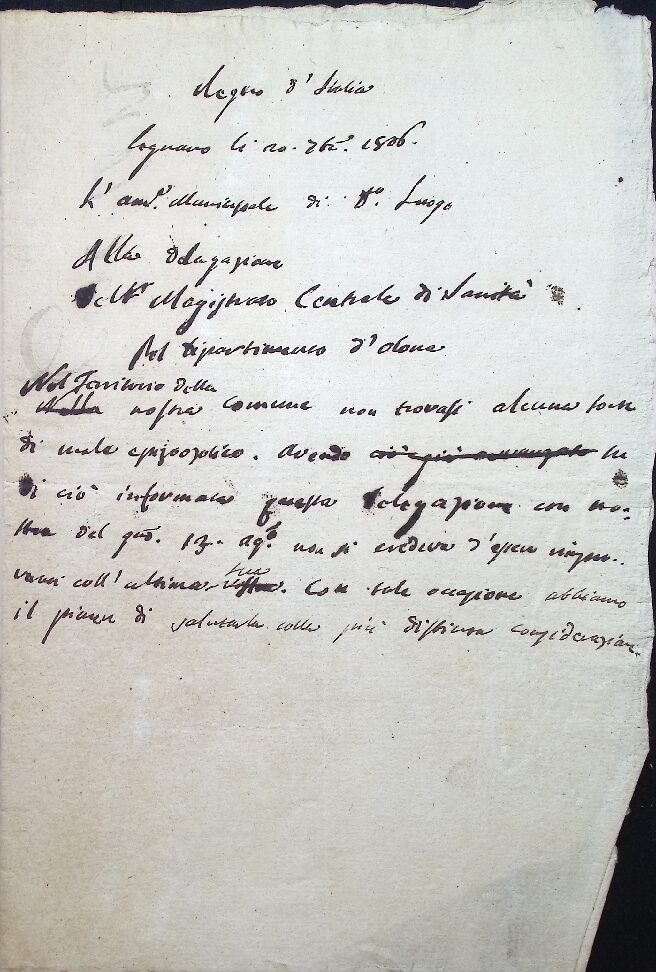 Regno d'Italia
Legnano li 20. 7bre. 1806.
L' amm.e Municipale di d.o Luogo
Alla Delegazione
del Magistrato Centrale di Sanità
Pel dipartimento d'Olona
Nel Territorio della
Nella nostra Comune non trovasi alcuna sorte
di male epizootico. Avendo ciò già
di ciò informato questa Delegazione con no=
stra del 13. ag.o non si credeva d'esser
coll'ultima sua. Con tale occasione abbiamo
il piacere di salutarla colla più distinta considerazione.